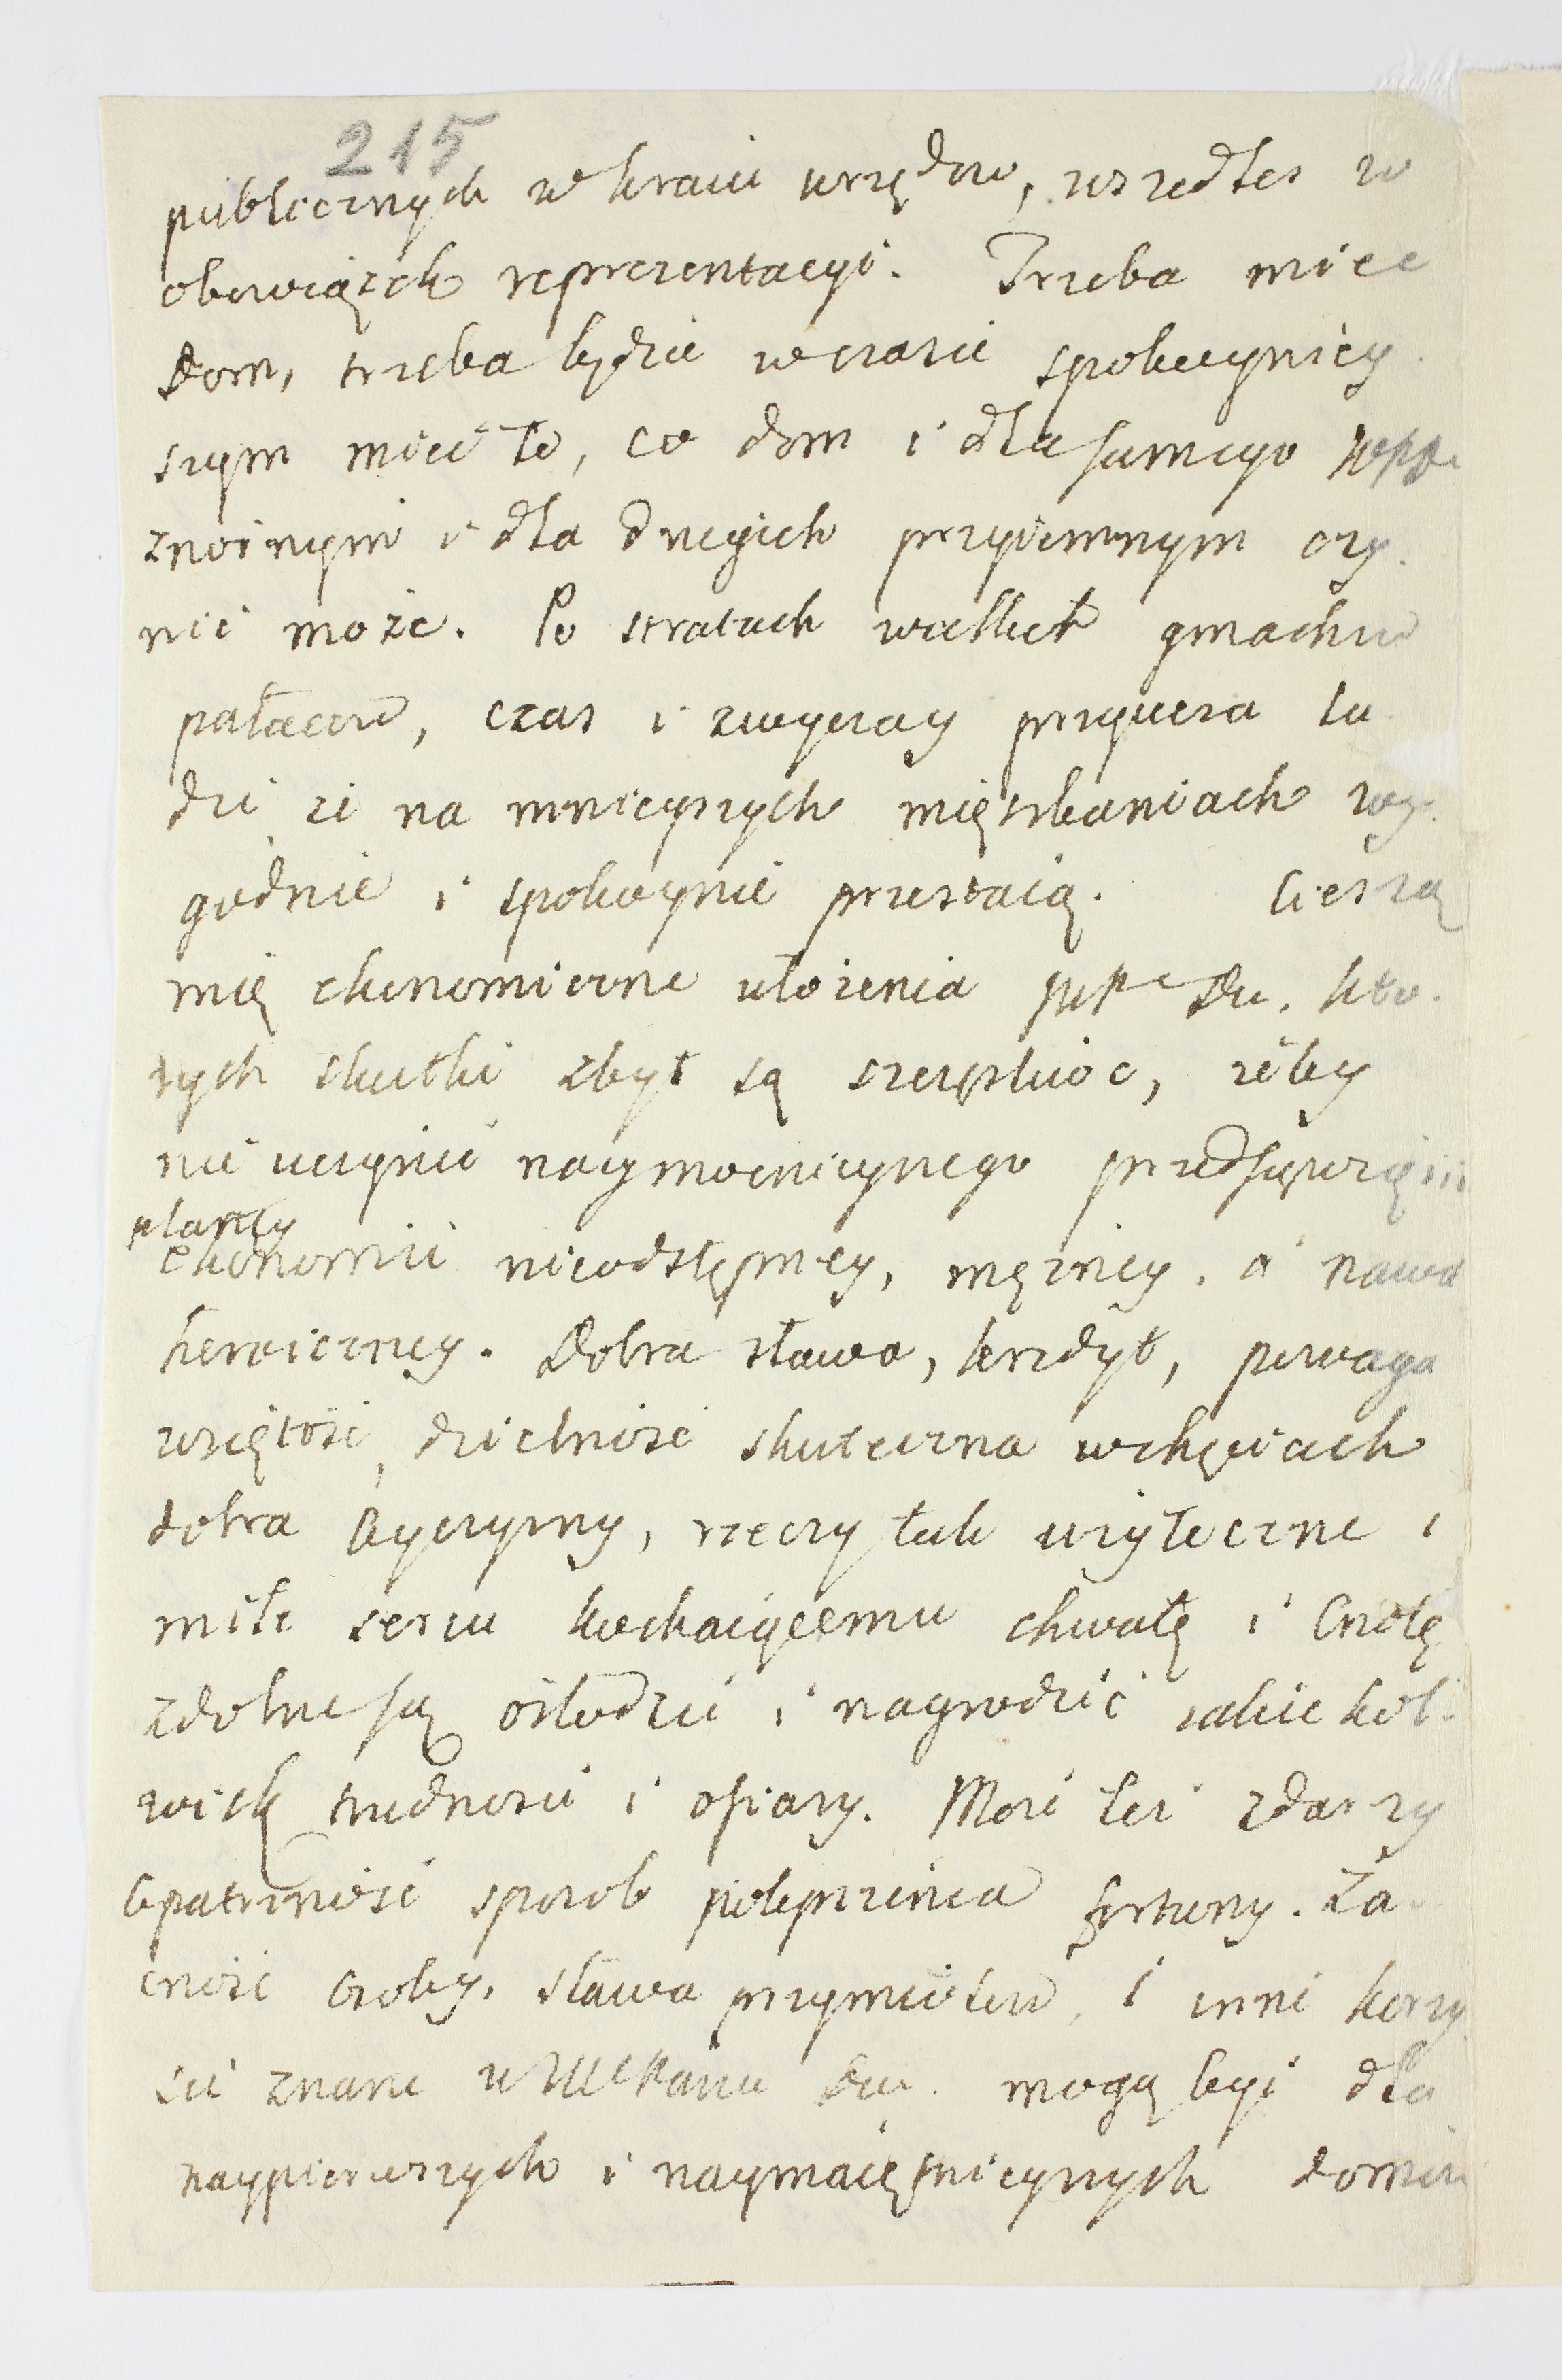 215
publicznych w kraiu urzędow, wszedłes w
obowiązek reprezentacyi. Trzeba miec
Dom, trzeba będzie w czasie spokoyniey
szym mieć to, co dom i dla samego
znosnym i dla drugich przyiemnym czy
nić może. Po stratach wielkich gmachow
pałacow, czas i zwyczay przyucza lu
dzi że na mnieyszych mięszkaniach wy
godnie i spokoynie przestaią. Cieszą
mię ekonomiczne ułożenia Du. kto
rych skutki zbyt są szczęsliwe, żeby
nie uczynić naymocnieyszego przedsięwzięcia
ekonomii nieodstępney, mężney, a nawet
heroiczney. Dobra sława, kredyt, powaga
wziętość, dzielność skuteczna w chęciach
dobra Oyczyzny, rzeczy tak użyteczne i
miłe sercu kochaiącemu chwałę i Cnotę
zdolne są osłodzić i nagrodzić iakie kol
wiek trudności i ofiary. Może też zdarzy
Opatrzność sposob polepszenia fortuny. Za
cność Osoby, sława przymiotow, i inne korzy
ści znane w Du. mogą być dla
naypierwszych i naymaiętnieyszych domow